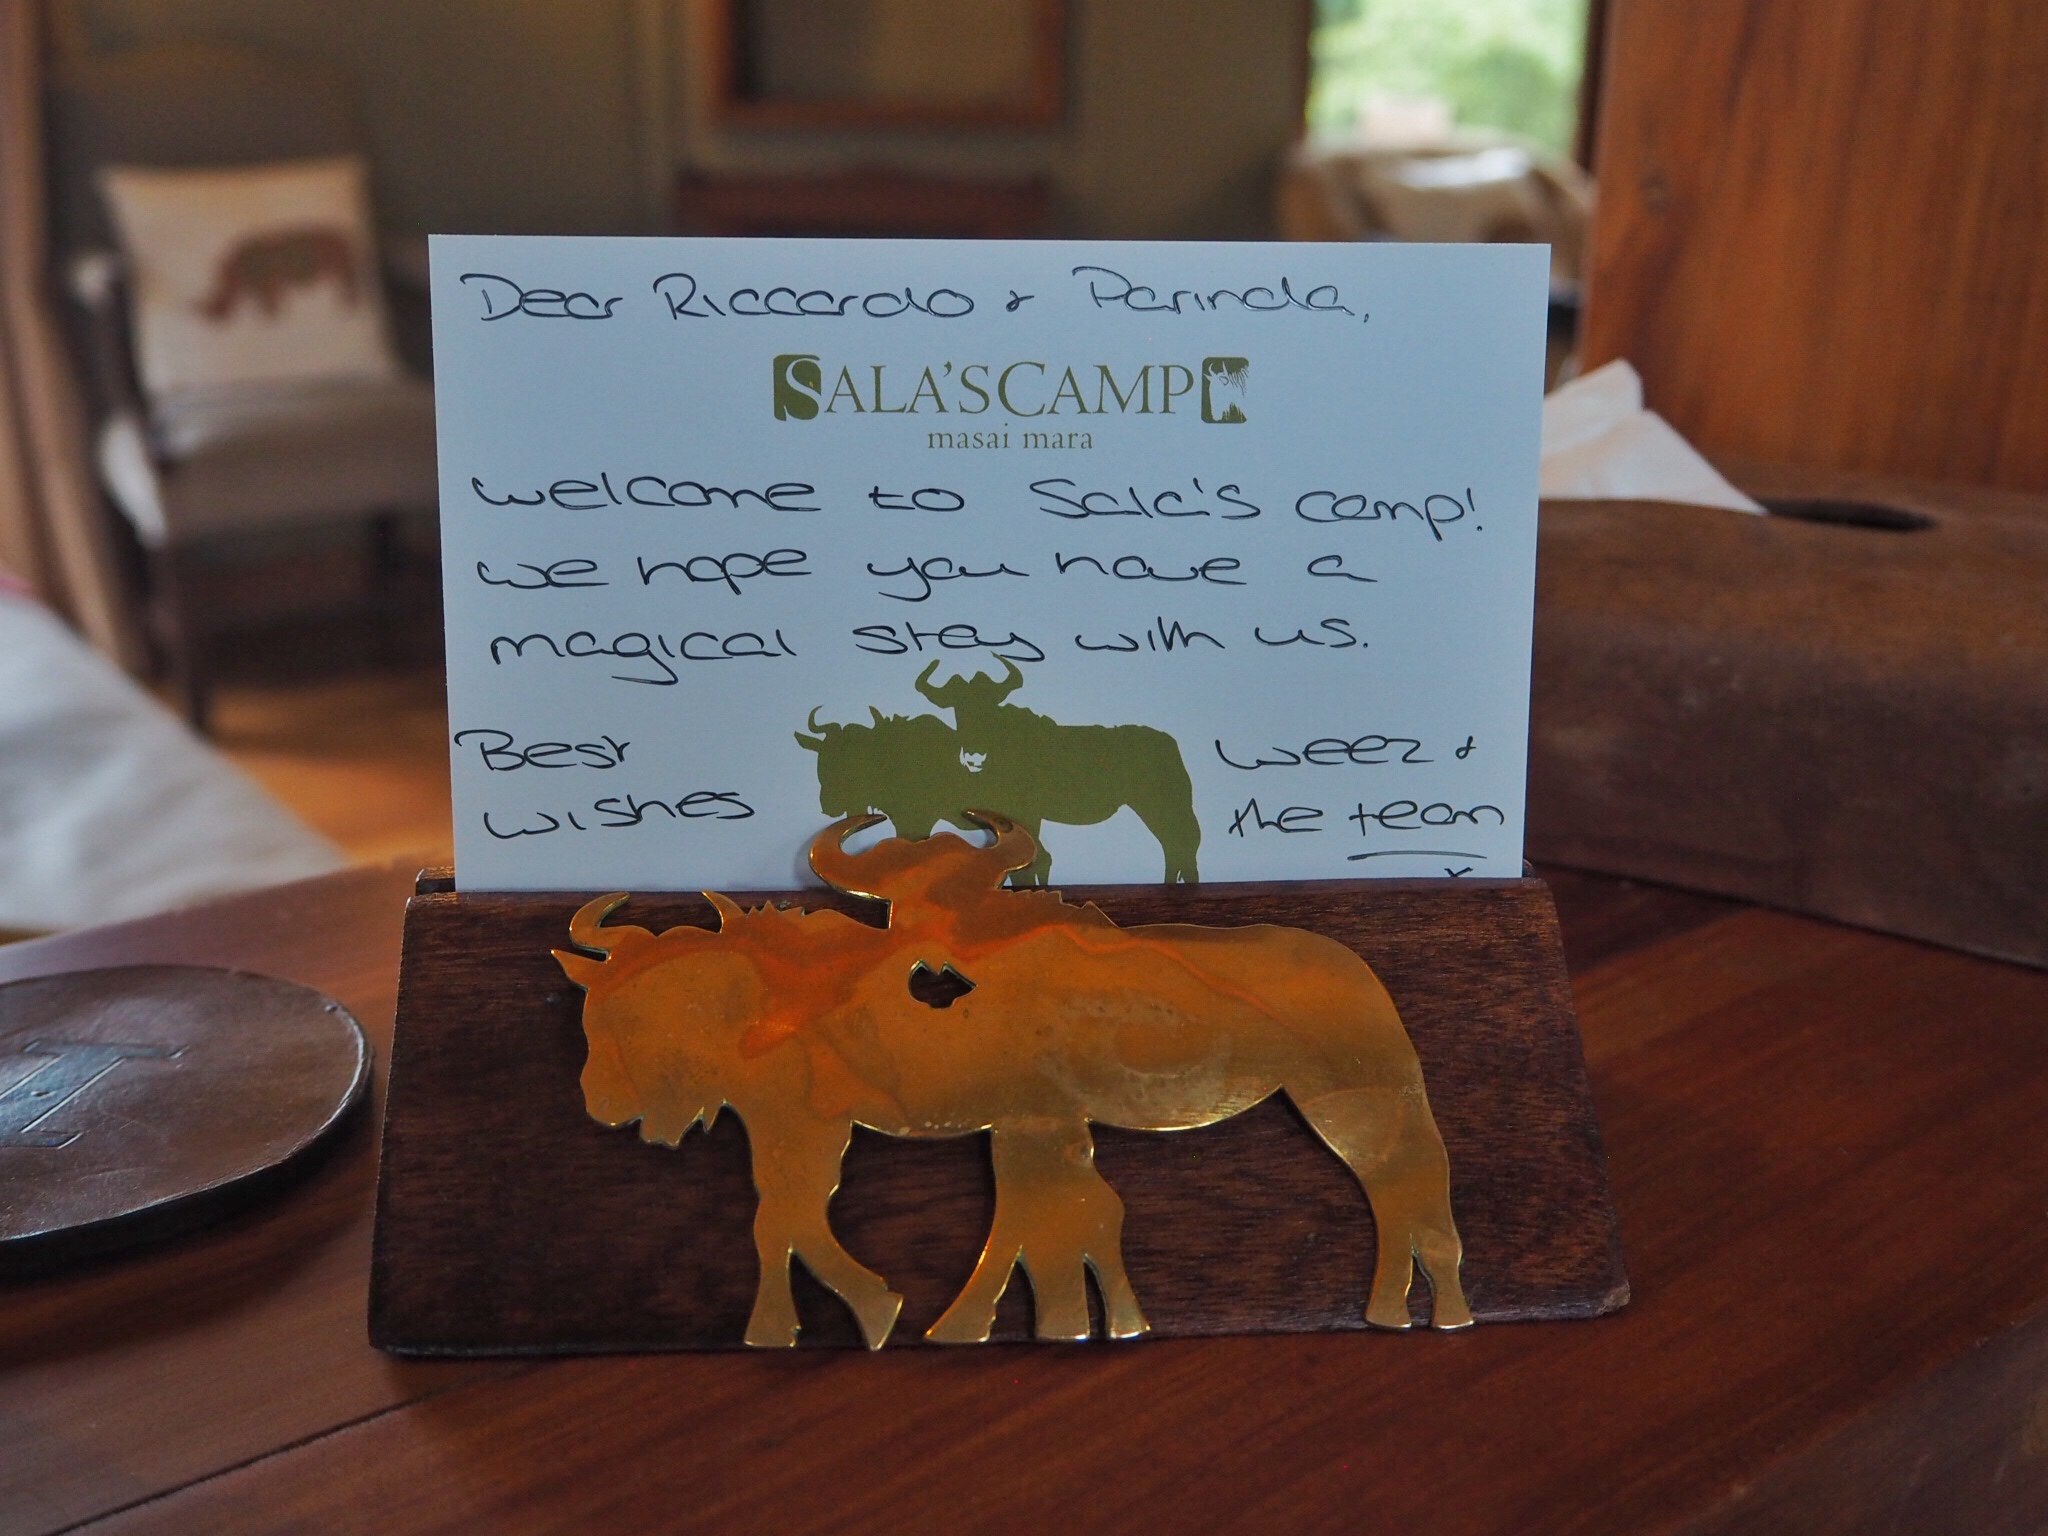 Dear Riccardo & Parinda,
SALA'S CAMP
masai mara
welcome to Sala's camp!
we hope you have a
magical stay with us.
Best
wishes
weez &
the team
x